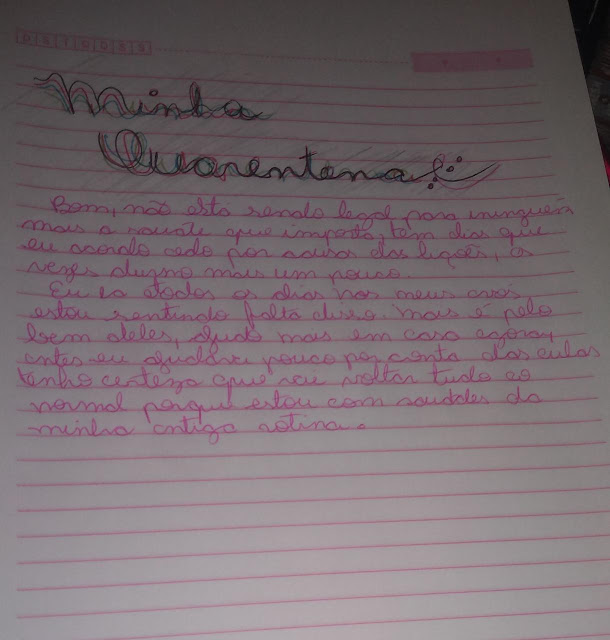 D S T Q Q S S
Minha
Quarentena
Bom, não esta sendo legal para ninguém
mais a saude que importa, tem dias que
eu acordo cedo por causa das lições, as
vezes durmo mais um pouco.
Eu ia todos os dias nos meus avós
estou sentindo falta disso mais é pelo
bem deles, ajudo mais em casa agora,
antes eu ajudava pouco por conta das aulas
tenho certeza que vai voltar tudo ao
normal porque estou com saudades da
minha antiga rotina.